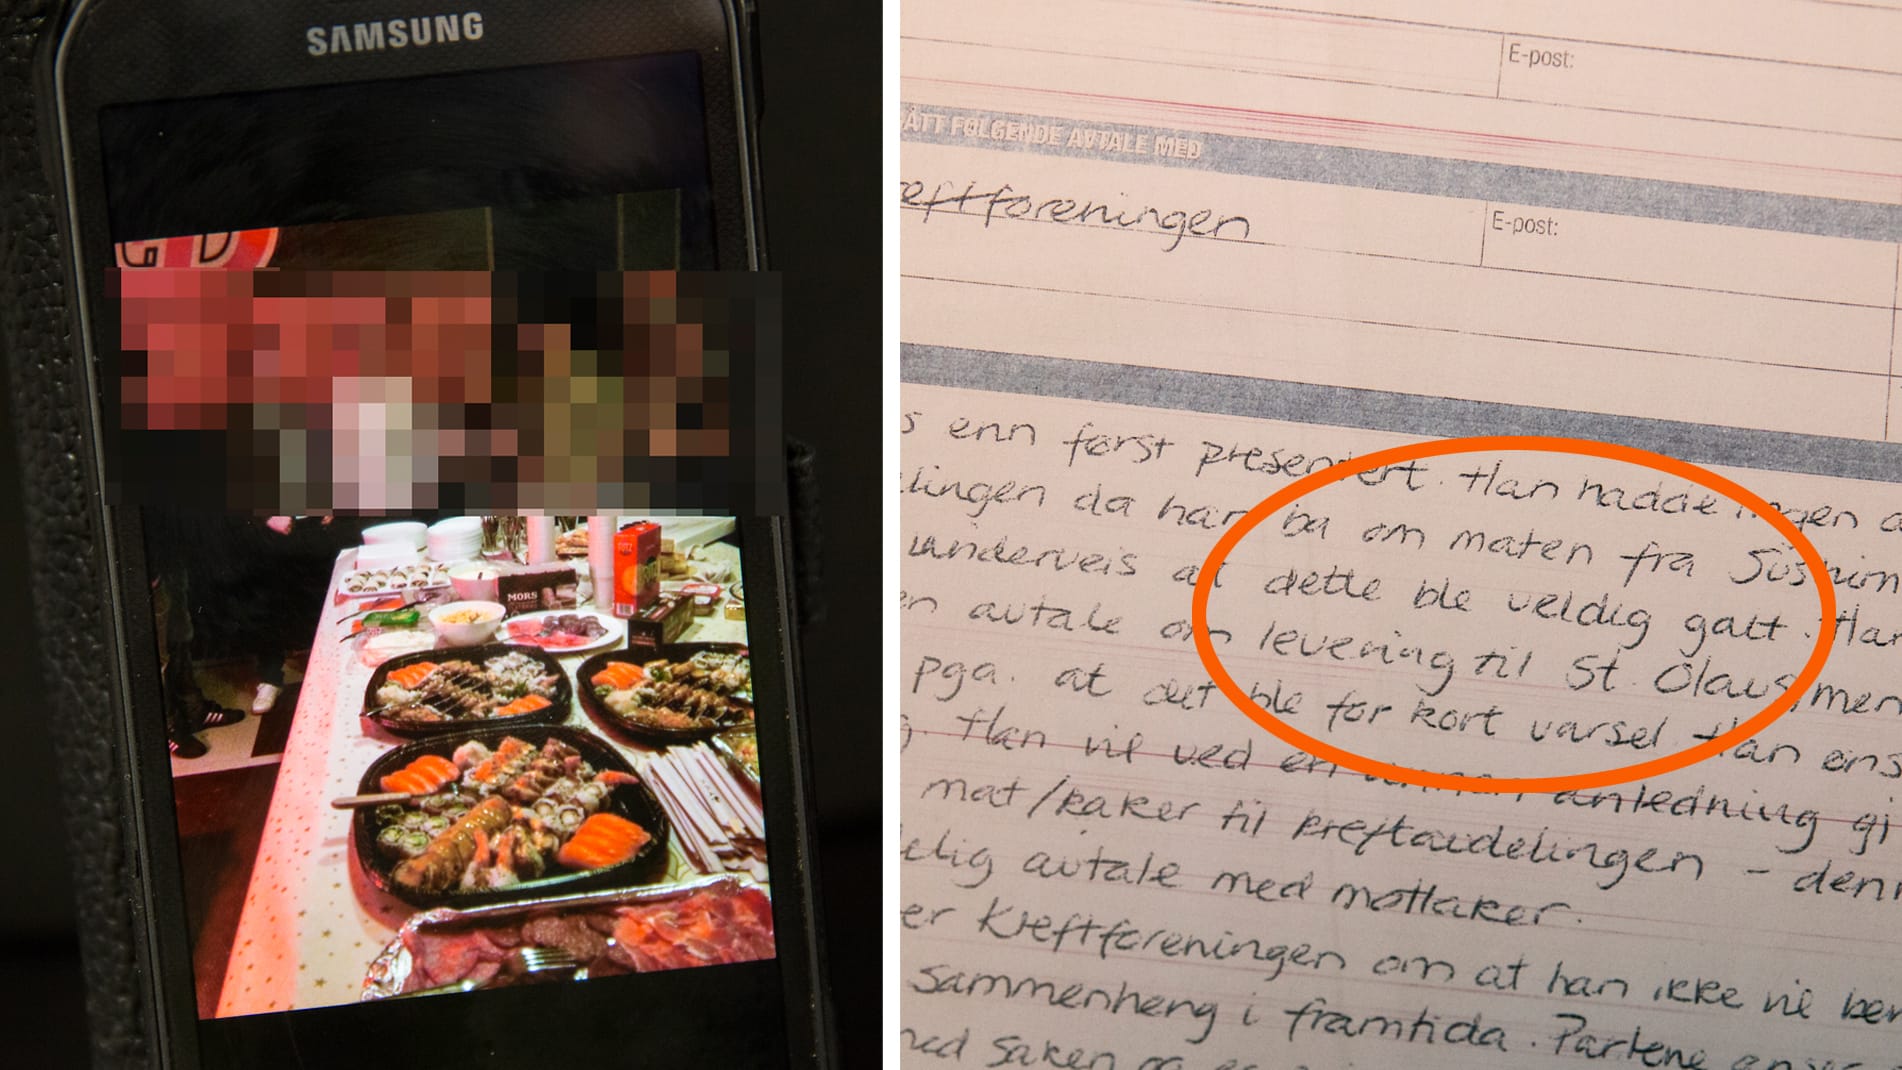 SAMSUNG
CD
MORS
E-post:
ÅTT FØLGENDE AVTALE MED
eftforeningen
E-post:
s enn først presentert. Han hadde ingen a
lingen da han ba om maten fra Sushim
underveis at dette ble veldig galt. Han
en avtale om levering til St. Olavs, men
pga. at det ble for kort varsel. Han øns
g. Han vil ved en annen anledning gi
mat/kaker til kreftavdelingen - denn
elig avtale med mottaker.
er Kreftforeningen om at han ikke vil ben
sammenheng i framtida. Partene anser
ned saken og